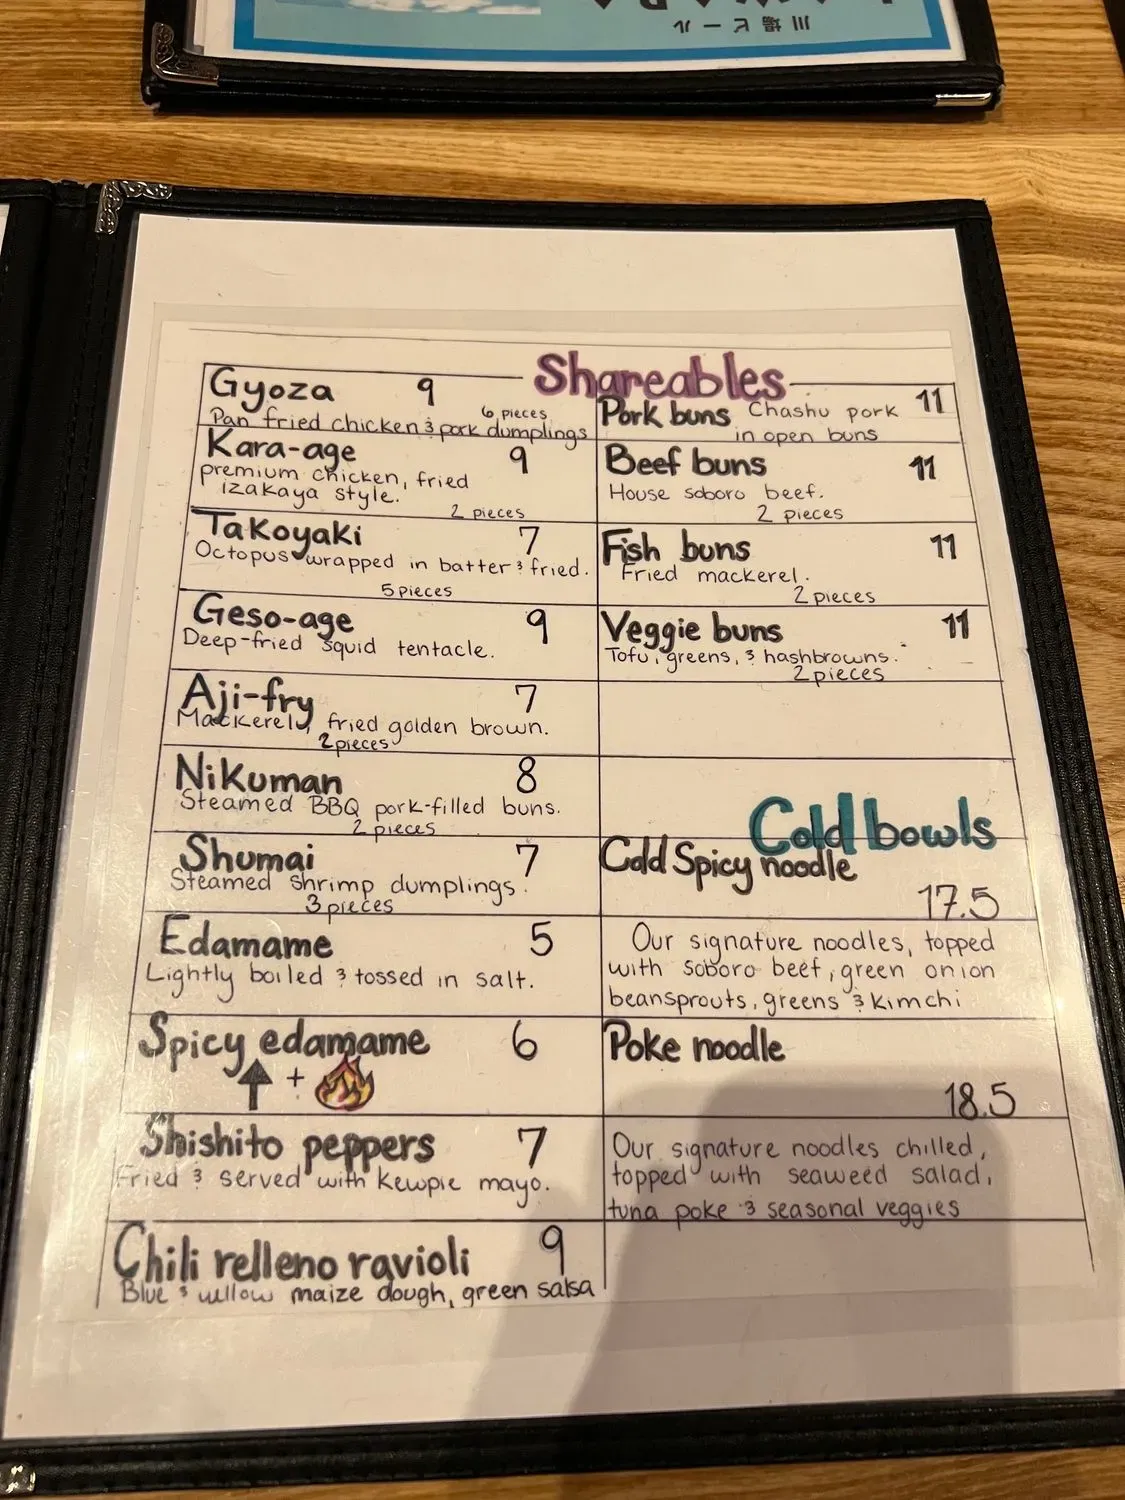 川場ビール
Shareables
Gyoza 9
6 pieces
Pan fried chicken & pork dumplings
Kara-age 9
premium chicken, fried
izakaya style.
2 pieces
Takoyaki 7
Octopus wrapped in batter & fried.
5 pieces
Geso-age 9
Deep-fried squid tentacle.
Aji-fry 7
Mackerel, fried golden brown.
2 pieces
Nikuman 8
Steamed BBQ pork-filled buns.
2 pieces
Shumai 7
Steamed shrimp dumplings.
3 pieces
Edamame 5
Lightly boiled & tossed in salt.
Spicy edamame 6
+
Shishito peppers 7
Fried & served with kewpie mayo.
Chili relleno ravioli 9
Blue & yellow maize dough, green salsa
Pork buns Chashu pork 11
in open buns
Beef buns 11
House soboro beef.
2 pieces
Fish buns 11
Fried mackerel.
2 pieces
Veggie buns 11
Tofu, greens, & hashbrowns.
2 pieces
Cold bowls
Cold Spicy noodle
17.5
Our signature noodles, topped
with soboro beef, green onion
beansprouts, greens & kimchi
Poke noodle
18.5
Our signature noodles chilled,
topped with seaweed salad,
tuna poke & seasonal veggies